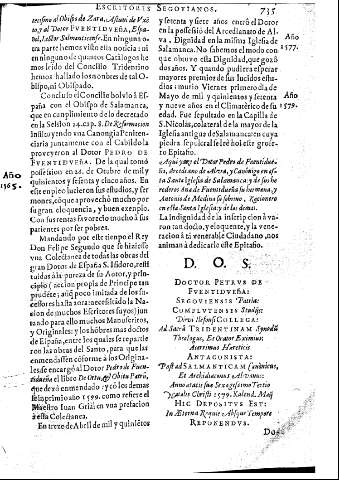 ESCRITORES SEGOVIANOS. 735
Año
1565.
teresino al Obispo de Zara, Assuni de Paz
y al Doctor FVENTIDVEÑA, Espa-
ñol, Lector Salmanticense. En ninguna o-
tra parte hemos visto esta noticia: ni
en ninguno de quantos Catalogos he-
mos leido del Concilio Tridentino
hemos hallado los nombres de tal O-
bispo, ni Obispado.
Concluso el Concilio bolvió à Es-
paña con el Obispo de Salamanca,
que en cumplimiento de lo decretado
en la Session 24. cap. 8. De Reformacion
Instituyendo vna Canongia Peniten-
ciaria juntamente con el Cabildo
proveyeron al Doctor PEDRO DE
FVENTIDVEÑA. De la qual tomó
possession en 26. de Otubre de mil y
quinientos y sesenta y cinco años. En
este empleo lucieron sus estudios, y ser-
mones, con que aprovechó mucho por
su gran eloquencia, y buen exemplo.
Con sus rentas favorecio mucho à sus
parientes por ser pobres.
Mandando por este tienpo el Rey
Don Felipe Segundo que se hiziesse
vna Colectanea de todas las obras del
gran Dotor de España S. Isidoro, resti-
tuidas à la pureza de su Autor, y prin-
cipio (accion propia de Principe tan
prudente; aunque poco imitada de los su-
cessores es hasta aora necessitando la Na-
cion de muchos Escritores suyos) jun-
tando para ello muchos Manuscritos,
y Originales: y los hombres mas doctos
de España, entre los quales se repartie-
ron las obras del Santo, para que las
enmendassen conforme à los Origina-
les: se encargó al Dotor Pedro de Fuente-
dueña el libro De Ortu, & Obitu Patrũ,
que dexó enmendado, y con los demas
se imprimio año 1599. como refiere el
Maestro Iuan Grial en vna prefacion
à esta Colectanea.
En trece de Abril de mil y quinientos
y setenta y siete años entró el Dotor
en la possession del Arcedianato de Al-
va, Dignidad en la misma Iglesia de
Salamanca. No sabemos el modo con
que obtuvo esta Dignidad, que gozó
dos años. Y quando pudiera esperar
mayores premios de sus lucidos estu-
dios: murio Viernes primero dia de
Mayo de mil y quinientos y setenta
y nueve años en el Climaterico de su
edad. Fue sepultado en la Capilla de
S. Nicolas, colateral de la mayor de la
Iglesia antigua de Salamanca en cuya
piedra sepulcral se lee hoi este grose-
ro Epitafio.
Año
1577.
Año
1579.
Aqui yaze el Dotor Pedro de Fuentidue-
ña, Arcediano de Alva, y Canonigo en es-
ta Santa Iglesia de Salamanca y de sus he-
rederos Ana de Fuentidueña su hermana, y
Antonio de Medina su sobrino, Racionero
en esta Santa Iglesia, y de las demas.
La indignidad de la inscripcion à va-
ron tan docto, y eloquente, y la vene-
racion à tã venerable Ciudadano, nos
animan à dedicarle este Epitafio.
D. O. S.
DOCTOR PETRVS DE
FVENTIDVEÑA:
SEGOVIENSIS Patria:
COMPLVTENSIS Studijs:
Divi Ildefonsi COLLEGA:
Ad Sacrã TRIDENTINAM Synodũ
Theologus, Et Orator Eximius:
Acerrimus Hæreticis
ANTAGONISTA:
Post ad SALMANTICAM Canonicus,
Et Archidiaconus Albanus:
Anno ætatis suæ Sexagesimo Tertio
Natalis Christi 1579. Kalend. Maij
HIC DEPOSITVS EST:
In Æterna Requie Absque Tempore
REPONENDVS.
Do-